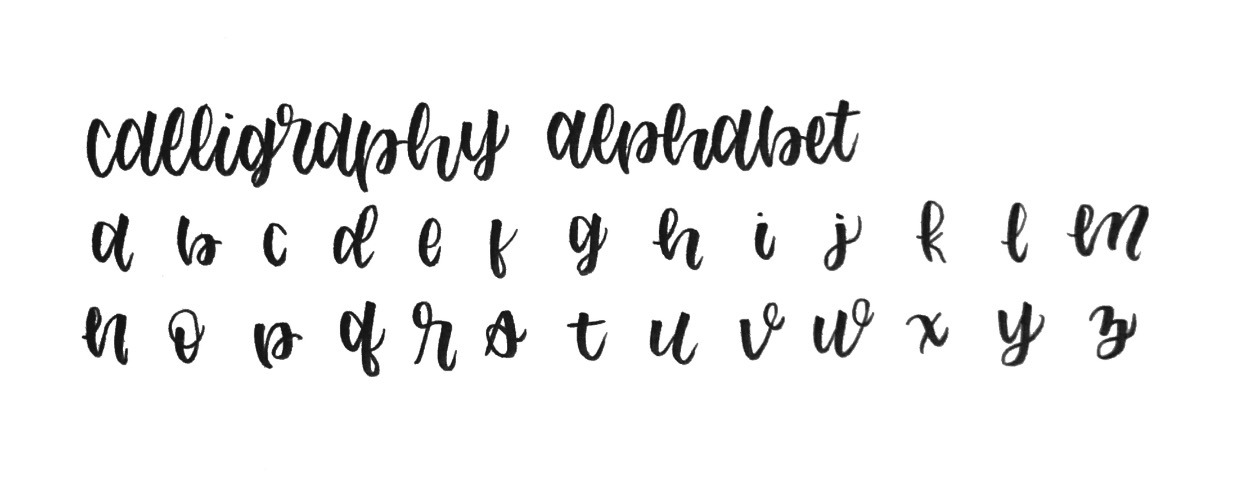 calligraphy alphabet
a b c d e f g h i j k l m
n o p q r s t u v w x y z